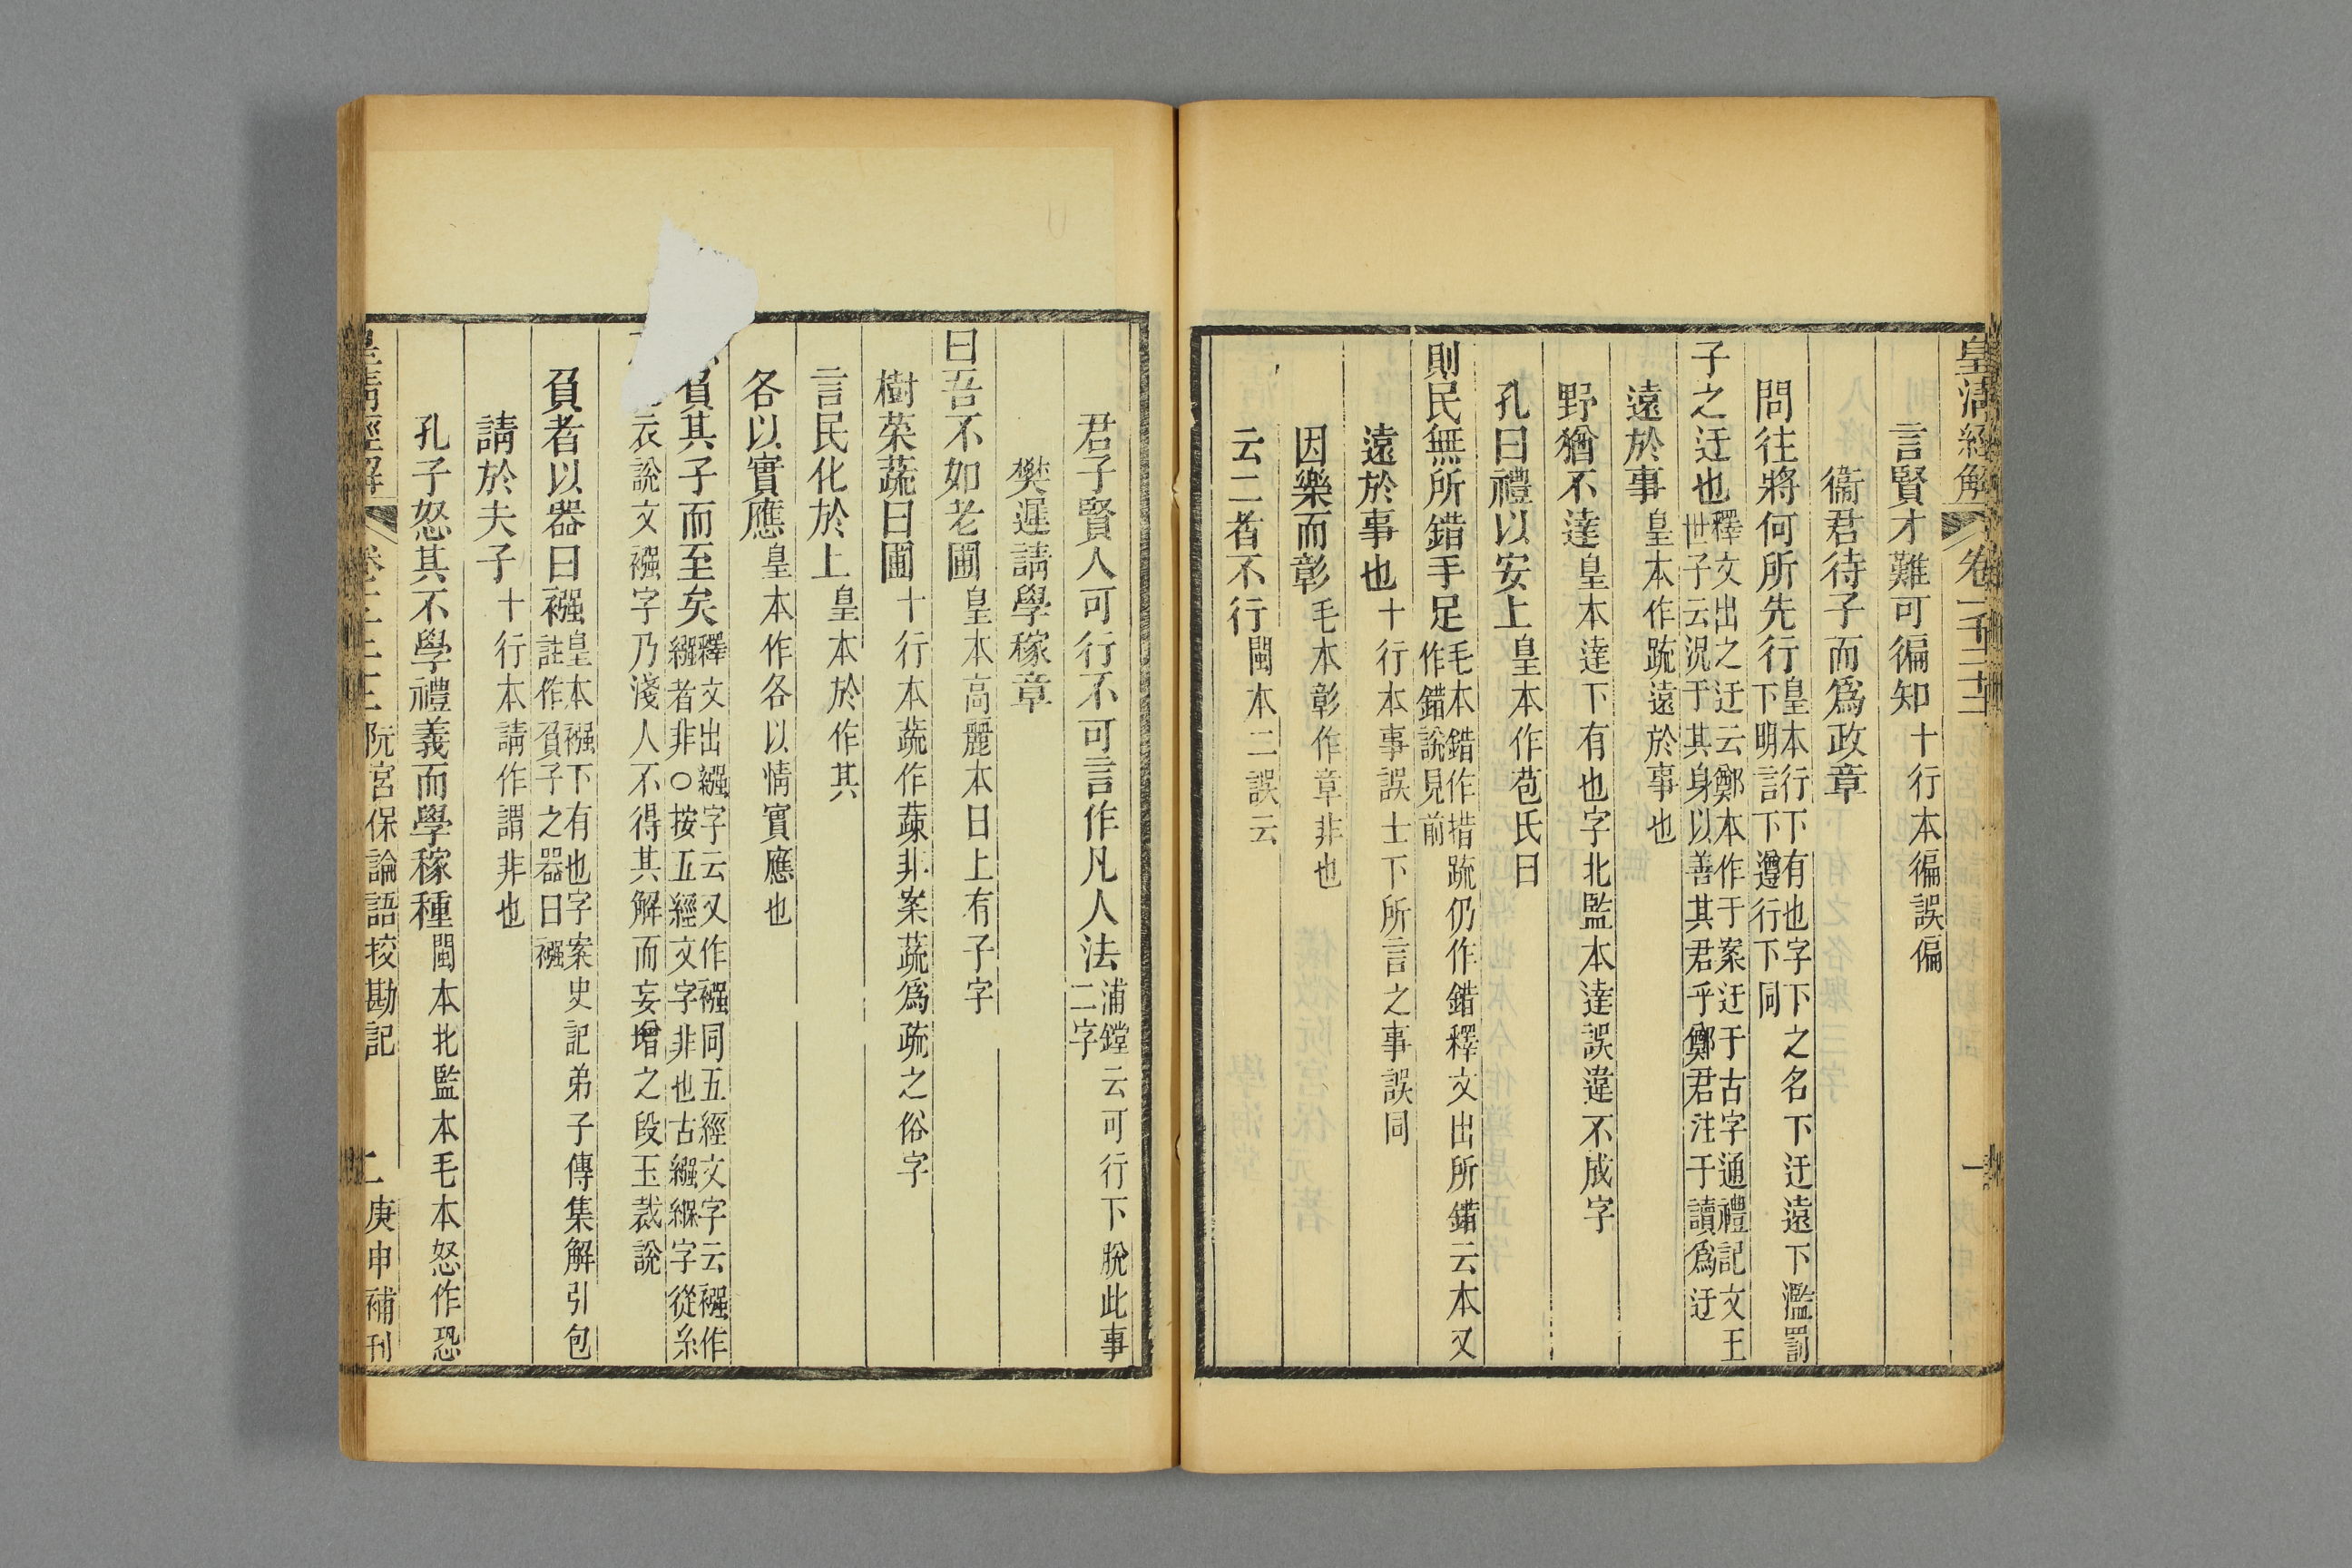 皇清經解 卷一千二十三 一
言賢才難可徧知十行本徧誤偏
衞君待子而爲政章
問往將何所先行皇本行下有也字下之名下迂遠下濫罰下明言下遵行下同
子之迂也釋文出之迂云鄭本作于案迂于古字通禮記文王世子云況于其身以善其君乎鄭君注于讀爲迂
遠於事皇本作䟽遠於事也
野猶不達皇本達下有也字北監本達誤違不成字
孔曰禮以安上皇本作苞氏曰
則民無所錯手足毛本錯作措䟽仍作錯釋文出所錯云本又作錯說見前
遠於事也十行本事誤士下所言之事誤同
因樂而彰毛本彰作章非也
云二者不行閩本二誤云
君子賢人可行不可言作凡人法浦鏜云可行下脫此事二字
樊遲請學稼章
曰吾不如老圃皇本高麗本曰上有子字
樹菜蔬曰圃十行本蔬作蔬非案蔬爲䟽之俗字
言民化於上皇本於作其
各以實應皇本作各以情實應也
負其子而至矣釋文出繈字云又作襁同五經文字云襁作繈者非○按五經文字非也古繈緥字從糸
衣說文襁字乃淺人不得其解而妄增之段玉裁說
負者以器曰襁皇本襁下有也字案史記弟子傳集解引包註作負子之器曰襁
請於夫子十行本請作謂非也
孔子怒其不學禮義而學稼種閩本北監本毛本怒作恐
皇清經解 卷 阮宮保論語挍勘記 二 庚申補刊